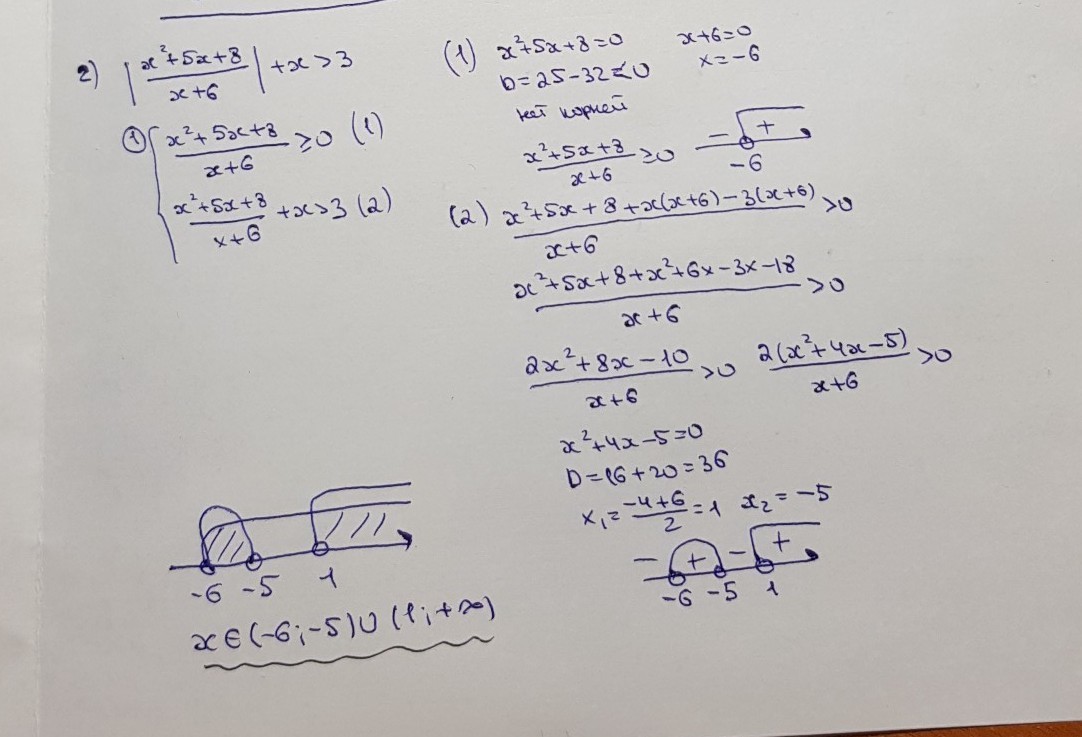 2) |(x²+5x+8)/(x+6)| + x > 3
① { (x²+5x+8)/(x+6) ≥ 0 (1)
(x²+5x+8)/(x+6) + x > 3 (2)
(1) x²+5x+8=0 x+6=0
D=25-32<0 x=-6
нет корней
(x²+5x+8)/(x+6) ≥ 0 - +
-6
(2) (x²+5x+8+x(x+6)-3(x+6))/(x+6) > 0
(x²+5x+8+x²+6x-3x-18)/(x+6) > 0
(2x²+8x-10)/(x+6) > 0 2(x²+4x-5)/(x+6) > 0
x²+4x-5=0
D=16+20=36
x₁=(-4+6)/2=1 x₂=-5
- + - +
-6 -5 1
-6 -5 1
x∈(-6;-5)∪(1;+∞)